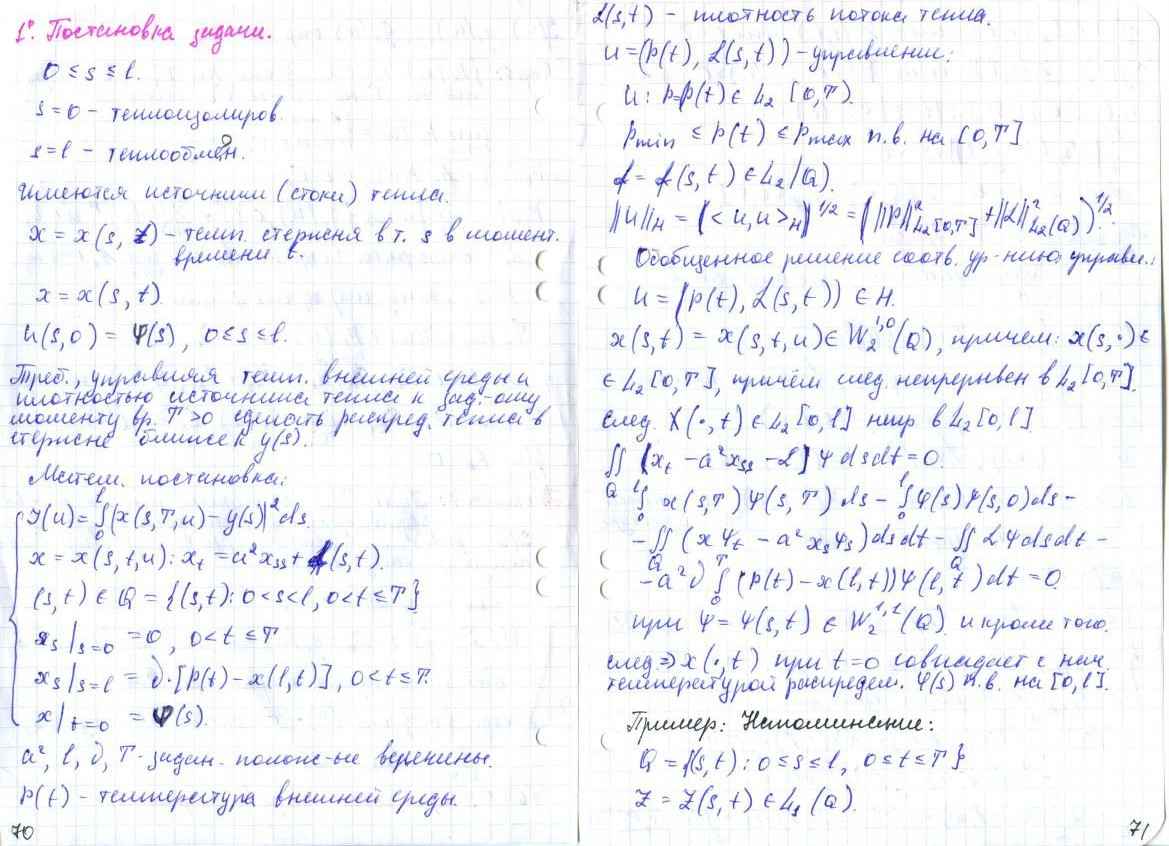 1°. Постановка задачи.
0 ≤ s ≤ l.
s = 0 – теплоизолиров.
s = l – теплообмен.
Имеются источники (стоки) тепла.
x = x(s, t) – темп. стержня в т. s в момент.
времени t.
x = x(s, t).
u(s,0) = φ(s), 0 ≤ s ≤ l.
Треб., управляя темп. внешней среды и
плотностью источника тепла к зад-ому
моменту вр. T > 0 сделать распред. тепла в
стержне ближе к y(s).
Матем. постановка:
J(u) = ∫₀ˡ |x(s,T,u) – y(s)|² ds.
x = x(s,t,u): x_t = a² x_ss + f(s,t).
(s,t) ∈ Q = {(s,t): 0 < s < l, 0 < t ≤ T}
x_s|_{s=0} = 0, 0 < t ≤ T
x_s|_{s=l} = ν·[p(t) – x(l,t)], 0 < t ≤ T.
x|_{t=0} = φ(s).
a², l, ν, T - задан. полож-ые величины.
p(t) – температура внешней среды.
70
L(s,t) – плотность потока тепла.
u = (p(t), L(s,t)) – управление:
u: p = p(t) ∈ L₂ [0,T).
p_min ≤ p(t) ≤ p_max п.в. на [0,T]
f = f(s,t) ∈ L₂(Q).
||u||_H = (<u,u>_H)^{1/2} = (||p||²_{L₂[0,T]} + ||L||²_{L₂(Q)})^{1/2}.
Обобщенное решение соотв. ур-нию управл.:
u = (p(t), L(s,t)) ∈ H.
x(s,t) = x(s,t,u) ∈ W₂^{1,0}(Q), причем: x(s,·) ∈
∈ L₂[0,T], причём след. непрерывен в L₂[0,T].
след. x(·,t) ∈ L₂[0,l] непр в L₂[0,l].
∬_Q [x_t – a² x_ss – L] ψ ds dt = 0.
∫₀ˡ x(s,T) ψ(s,T) ds – ∫₀ˡ φ(s) ψ(s,0) ds –
– ∬_Q (x ψ_t – a² x_s ψ_s) ds dt – ∬_Q L ψ ds dt –
– a² ν ∫₀ᵀ (p(t) – x(l,t)) ψ(l,t) dt = 0
при ψ = ψ(s,t) ∈ W₂^{1,1}(Q). и кроме того.
след ⇒ x(·,t) при t = 0 совпадает с нач.
температурой распредел. φ(s) п.в. на [0,l].
Пример: Напоминание:
Q = {(s,t): 0 ≤ s ≤ l, 0 ≤ t ≤ T}
z = z(s,t) ∈ L₂(Q).
71